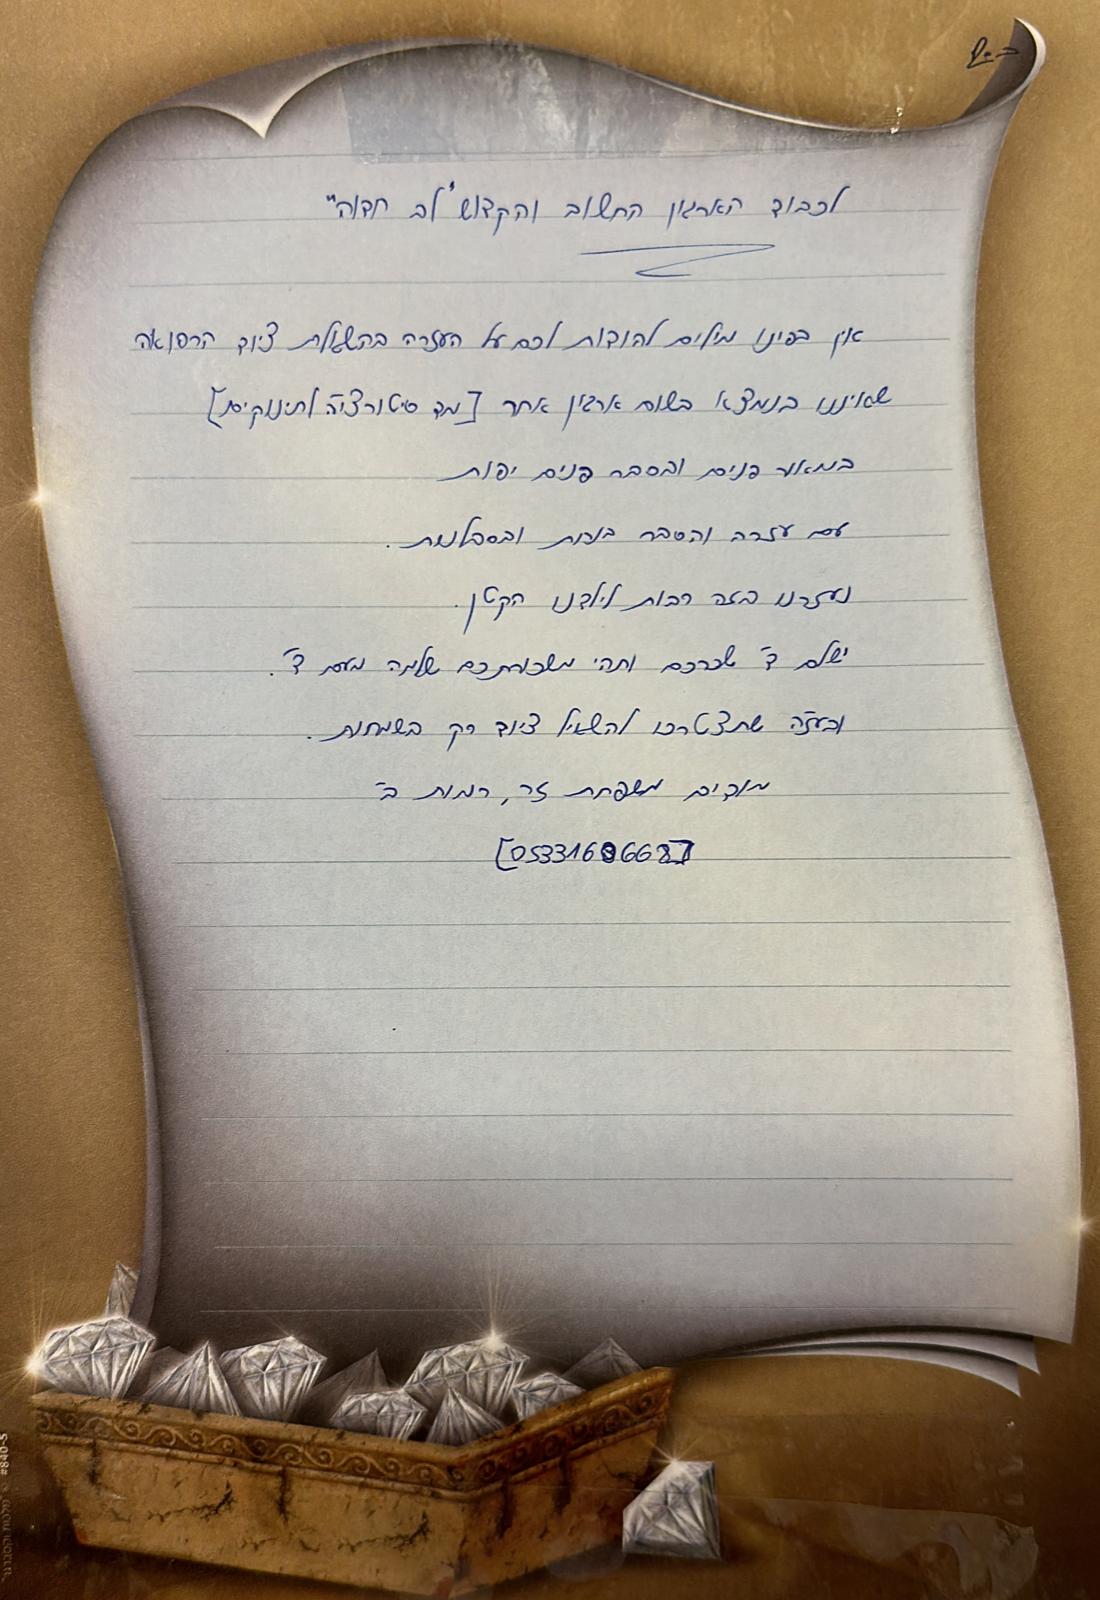 בס"ד
לכבוד הארגון החשוב והקדוש "לב חדוה"
אין בפינו מילים להודות לכם על העזרה בהשאלת ציוד הרפואה
שאיננו בנמצא בשום ארגון אחר [מד סיטורציה לתינוקות]
במאור פנים ובסבר פנים יפות
עם עזרה והסבר ובסבלנות.
נעזרנו בזה רבות לילדנו הקטן.
ישלם ד' שכרכם ותהי משכורתכם שלמה מעם ד'.
ובעז"ה שתצטרכו להשאיל ציוד רק בשמחות.
מודים משפחת זר, רמות ב'
#840-S